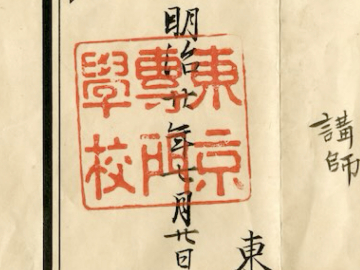 講師
東
明治廿年七月廿日
東京
專門
學校